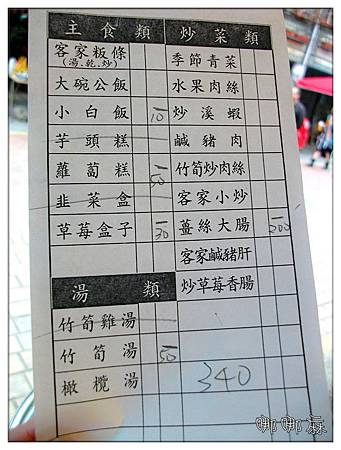 主食類
客家粄條
(湯.乾.炒)
大碗公飯
小白飯 10
芋頭糕
蘿蔔糕 50
韭菜盒
草莓盒子 30
湯類
竹筍雞湯
竹筍湯 50
橄欖湯
炒菜類
季節青菜
水果肉絲
炒溪蝦
鹹豬肉
竹筍炒肉絲
客家小炒
薑絲大腸 200
客家鹹豬肝
炒草莓香腸
340
娜娜蘇